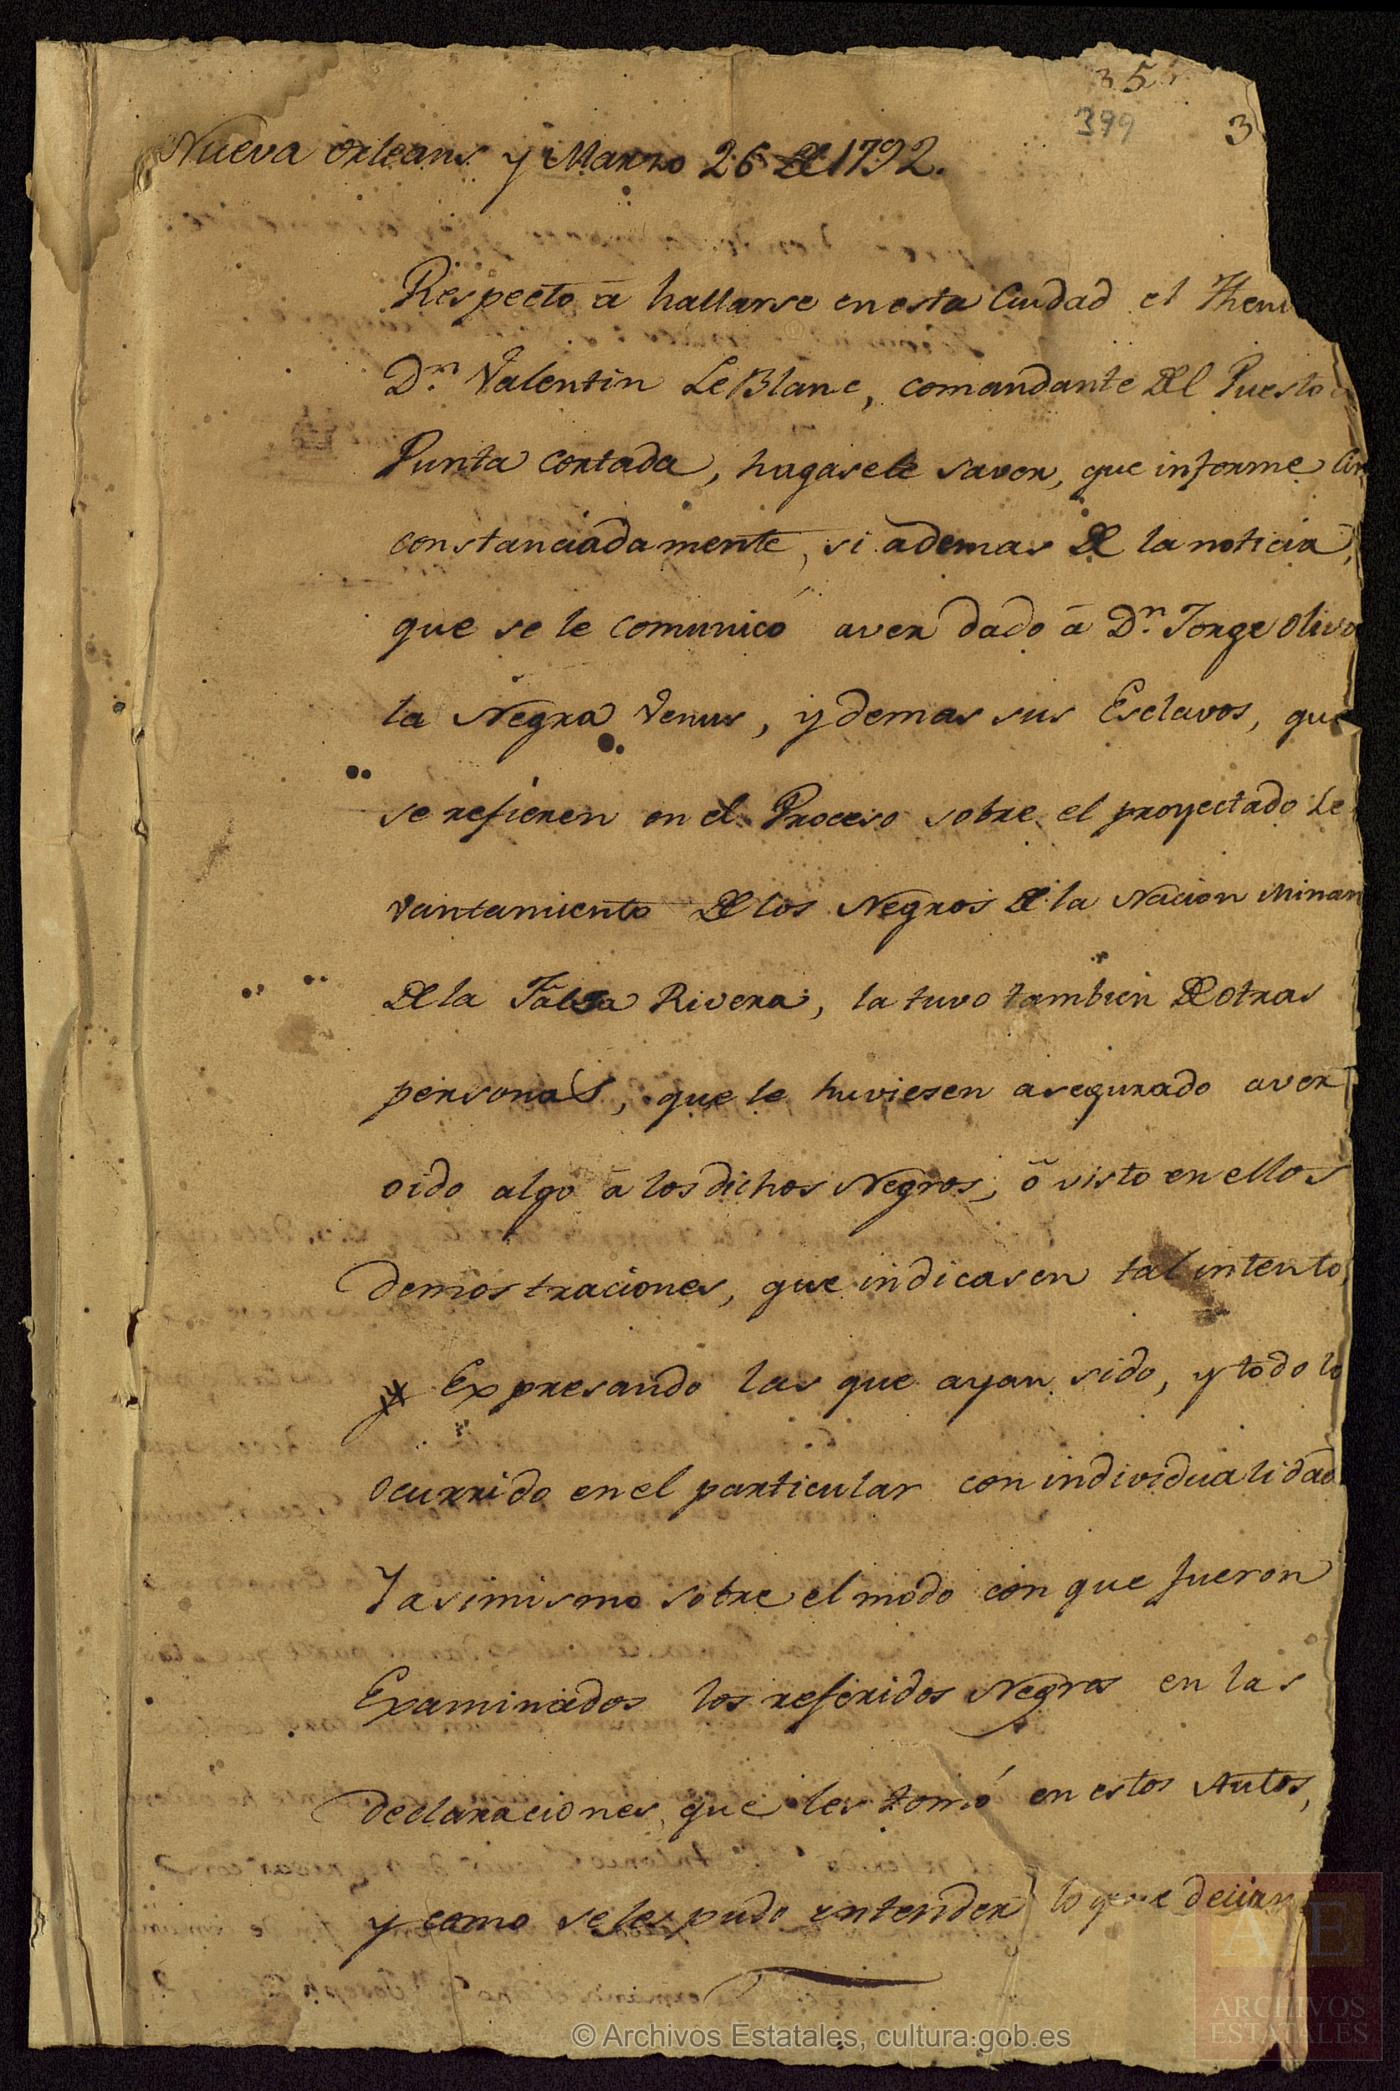 35
399
3
Nueva Orleans y Marzo 26 de 1792.
Respecto â hallarse en esta Ciudad el Then
Dn. Valentin LeBlanc, comandante del Puesto
Punta cortada, hagasele saver, que informe Cir
constanciadamente, si ademas de la noticia,
que se le comunicó aver dado â Dn. Jorge Oliva
la Negra Venus, y demas sus Esclavos, que
se refieren en el Proceso sobre el proyectado Le
vantamiento de los Negros de la Nacion Minan
de la Falsa Rivera, la tuvo tambien de otras
personas, que le huviesen asegurado aver
oido algo â los dichos Negros, ô visto en ellos
demostraciones, que indicasen tal intento,
Expresando las que ayan sido, y todo lo
ocurrido en el particular con individualidad
Y asimismo sobre el modo con que fueron
Examinados los referidos Negros en las
declaraciones, que les tomó en estos Autos,
y como se les pudo entender lo que decian
© Archivos Estatales, cultura.gob.es
AE
ARCHIVOS
ESTATALES